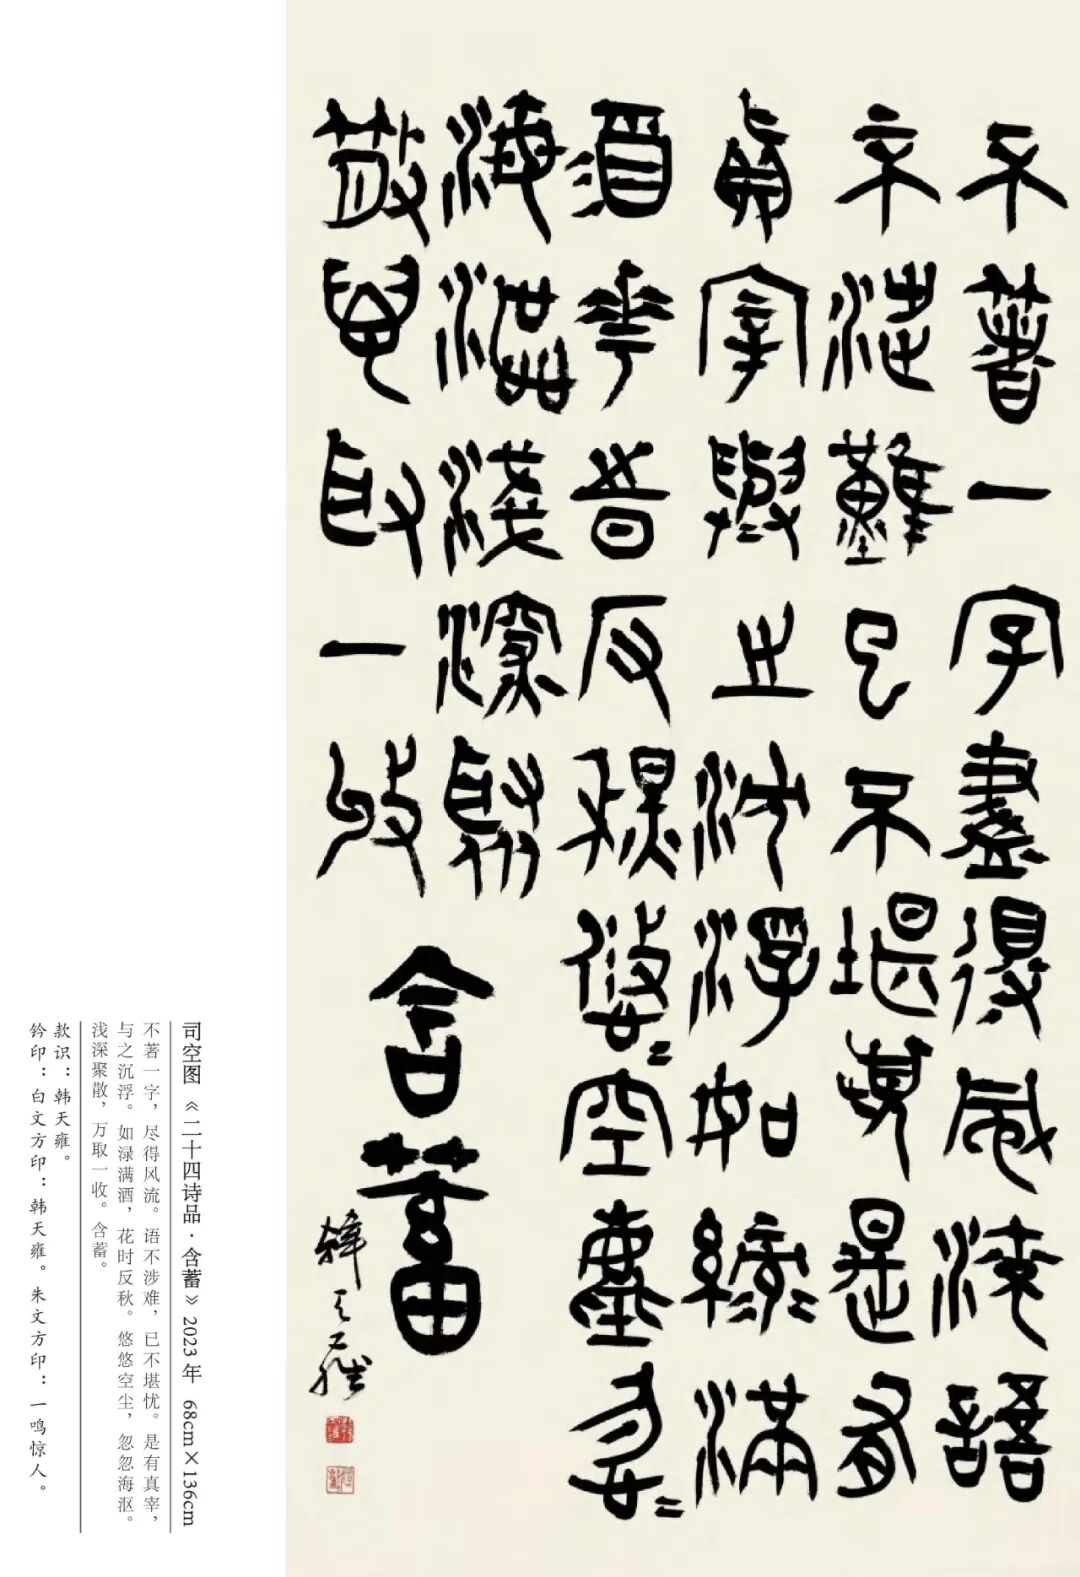 不著一字盡得風流語
不涉難已不堪憂是有
真宰與之沈浮如綠滿
酒花時反秋悠〻空塵忽〻
海漚淺深聚
散萬取一收
含蓄
韓天雍
司空图《二十四诗品·含蓄》2023 年 68cm×136cm
不著一字，尽得风流。语不涉难，已不堪忧。是有真宰，
与之沉浮。如渌满酒，花时反秋。悠悠空尘，忽忽海沤。
浅深聚散，万取一收。含蓄。
款识：韩天雍。
钤印：白文方印：韩天雍。朱文方印：一鸣惊人。